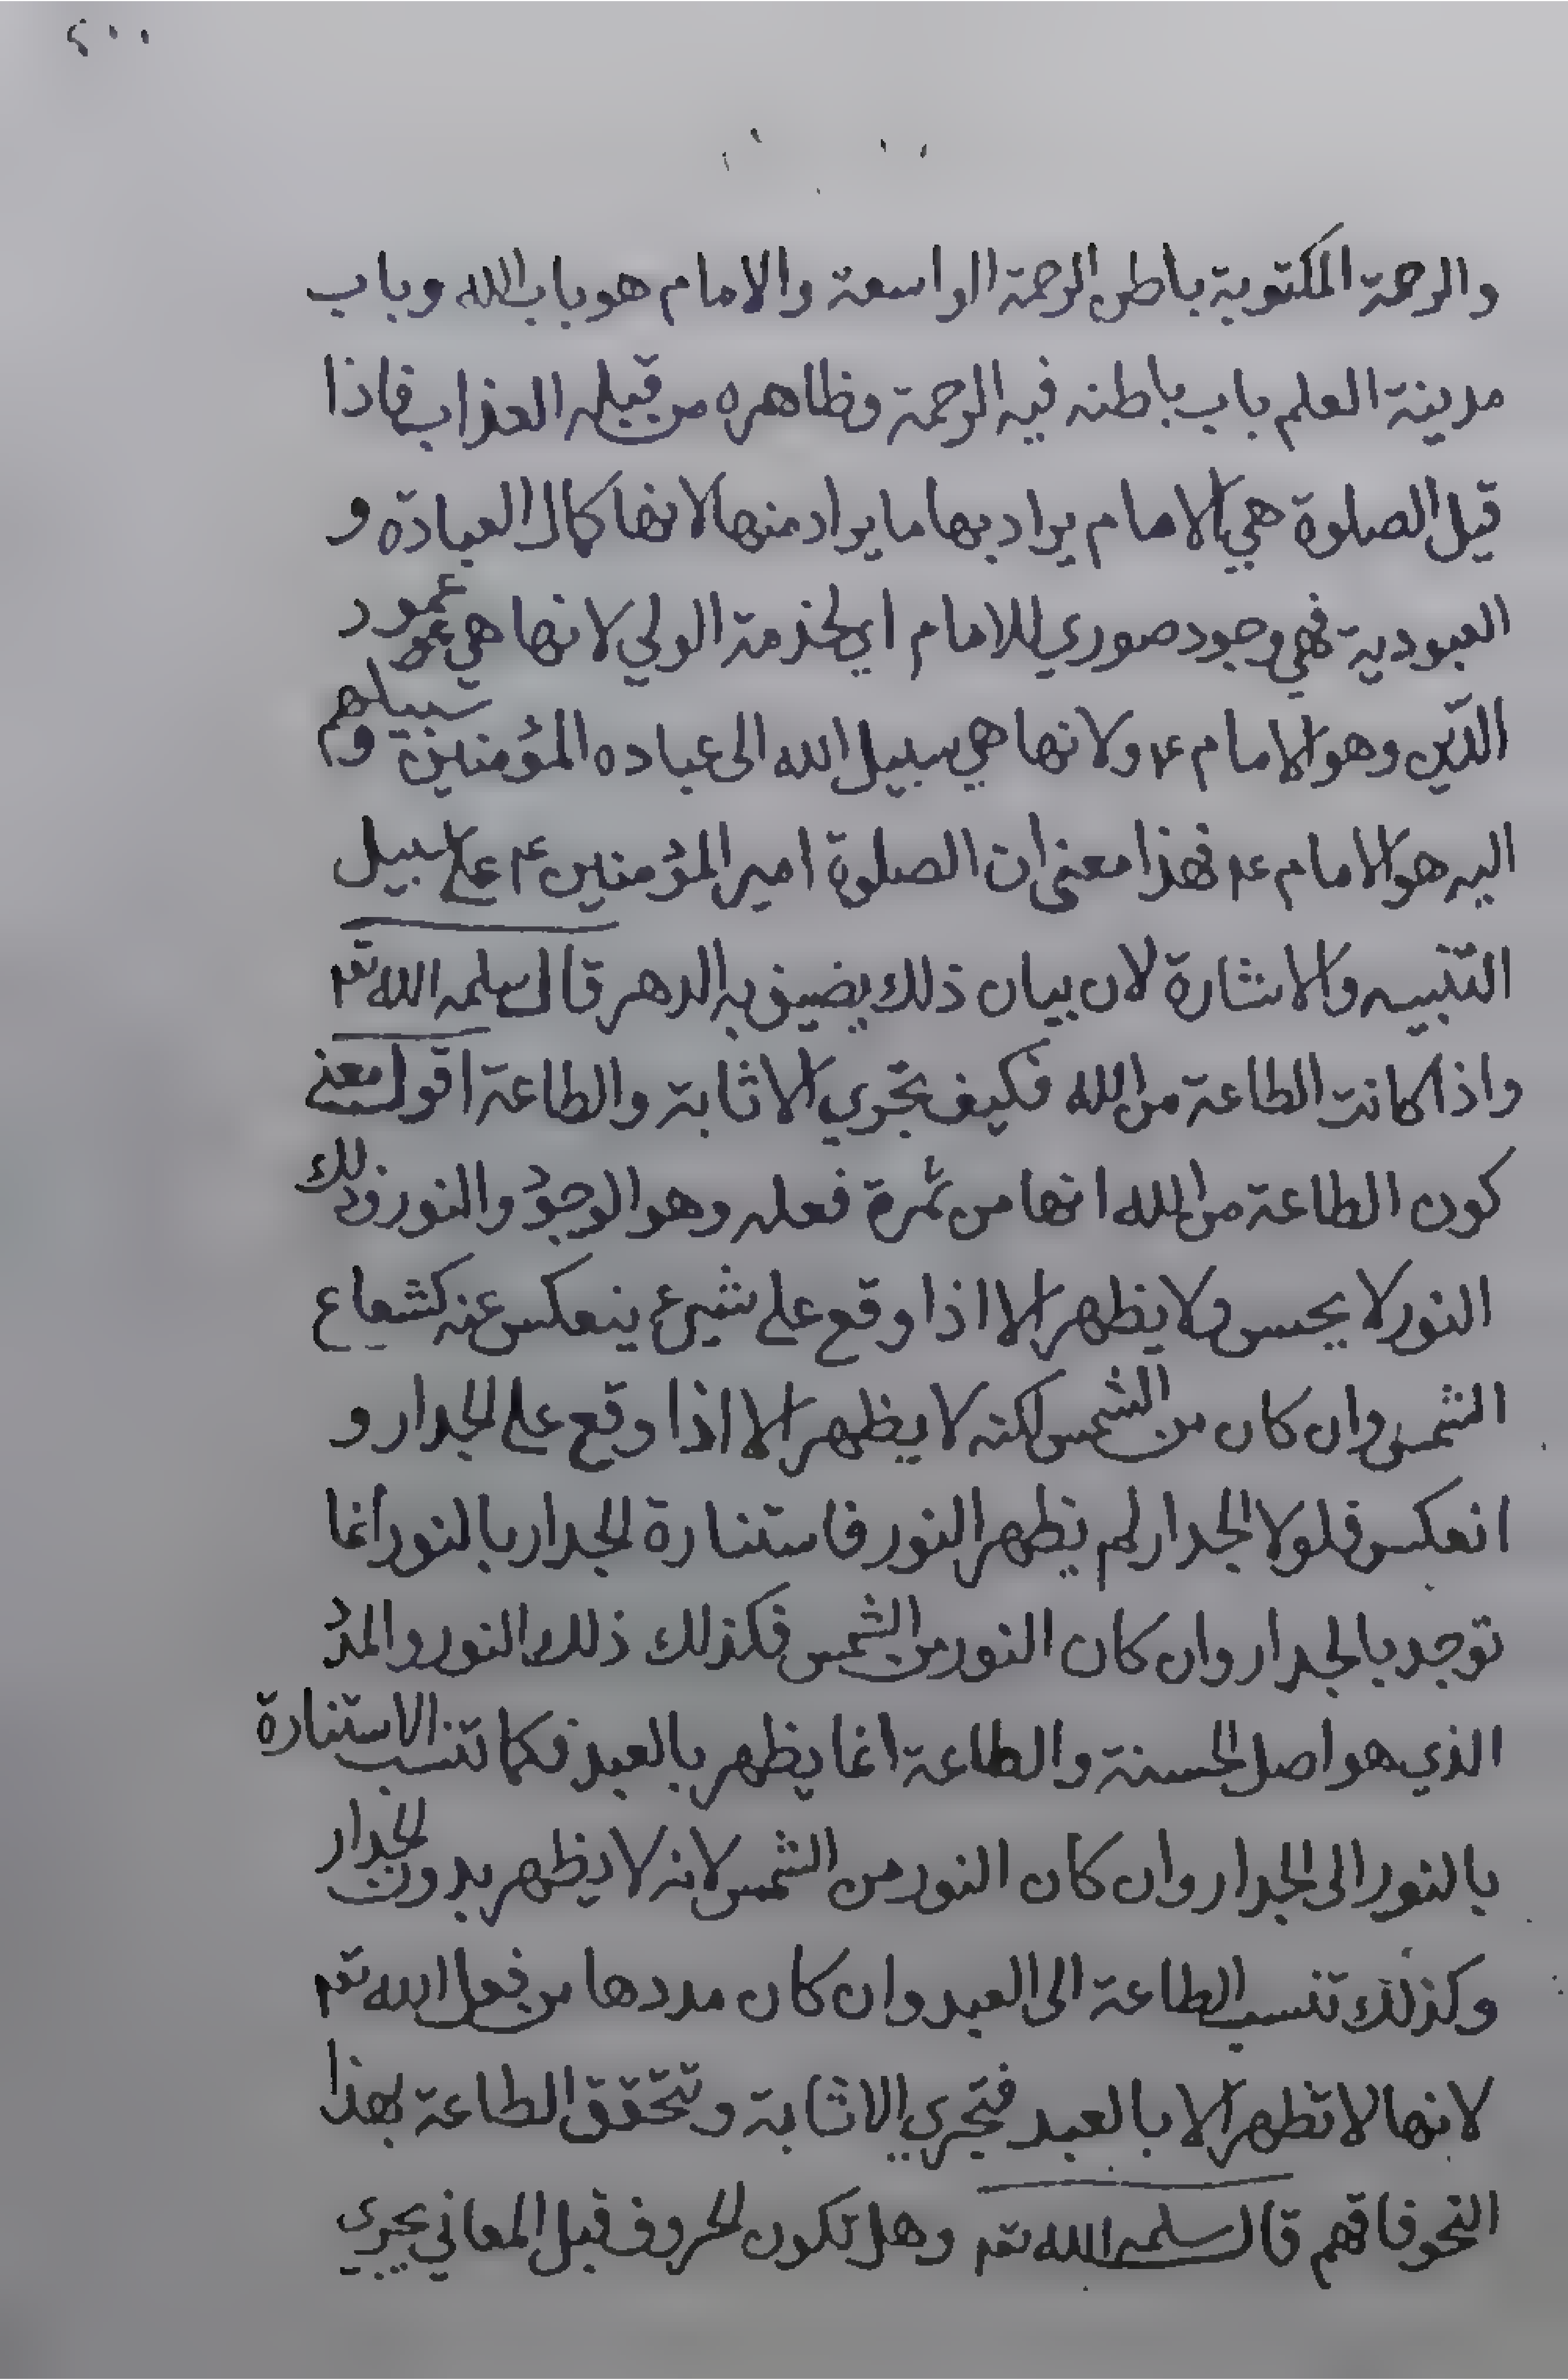 ٢٠٠
والرحمة المكتوبة باطن الرحمة الواسعة والامام هو باب الله وباب
مدينة العلم باب باطنه فيه الرحمة وظاهره من قبله العذاب فاذا
قيل الصلوة هي الامام يراد بها ما يراد منها لانها كمال العبادة و
العبودية فهي وجود صوري للامام اي لخدمة الولي لانها هي عمود
الدّين وهو الامام ع ولانها هي سبيل الله الى عباده المؤمنين وسبيلهم
اليه هو الامام ع فهذا معنى ان الصلوة امير المؤمنين ع على سبيل
التنبيه والاشارة لان بيان ذلك يضيق به الدهر قال سلمه الله تعم
واذا كانت الطاعة من الله فكيف تجري الاثابة والطاعة اقول معنى
كون الطاعة من الله انها من ثمرة فعله وهو الوجود والنور وذلك
النور لا يحس ولا يظهر الا اذا وقع على شيء ينعكس عنه كشعاع
الشمس وان كان من الشمس لكنه لا يظهر الا اذا وقع على الجدار و
انعكس فلولا الجدار لم يظهر النور فاستنارة الجدار بالنور انما
توجد بالجدار وان كان النور من الشمس فكذلك ذلك النور والمدد
الذي هو اصل الحسنة والطاعة انما يظهر بالعبد فكما تنسب الاستنارة
بالنور الى الجدار وان كان النور من الشمس لانه لا يظهر بدون الجدار
وكذلك تنسب الطاعة الى العبد وان كان مددها من فعل الله تعم
لانها لا تظهر الا بالعبد فتجري الاثابة وتتحقق الطاعة بهذا
النحو فافهم قال سلمه الله تعم وهل تكون الحروف قبل المعاني يجري